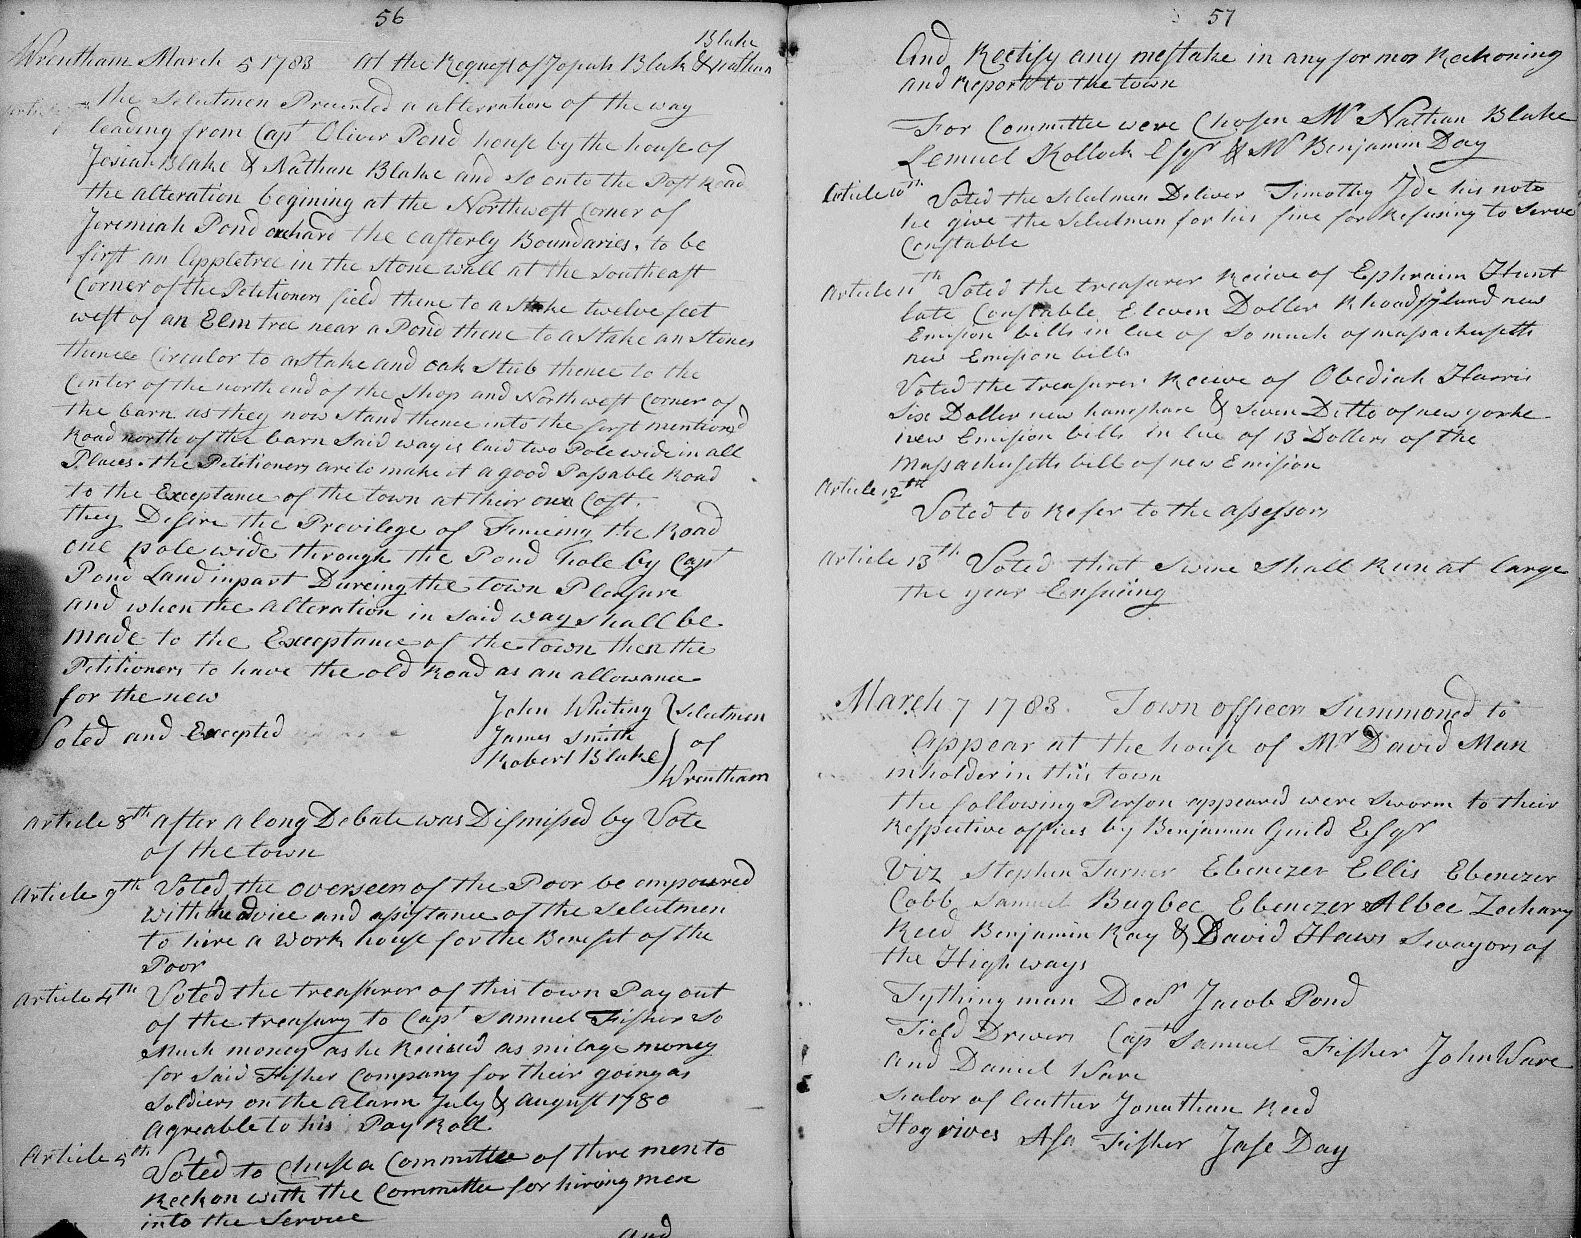 56
Wrentham March 5 1783 At the Request of Josiah Blake & Nathan Blake
the Selectmen Presented a alteration of the way
leading from Capt Oliver Pond house by the house of
Josiah Blake & Nathan Blake and so onto the Post Road
the alteration begining at the Northwest Corner of
Jeremiah Pond orchard the easterly Boundaries, to be
first an Appletree in the Stone wall at the Southeast
Corner of the Petitioners field thence to a Stake twelve feet
west of an Elm tree near a Pond thence to a Stake an Stones
thence Circular to a Stake and oak Stub thence to the
Center of the north end of the Shop and Northwest Corner of
the barn as they now Stand thence into the first mentioned
Road north of the barn Said way is laid two Pole wide in all
Places. the Petitioners are to make it a good Passable Road
to the Exceptance of the town at their one Cost.
they Desire the Previlege of Fenceing the Road
one pole wide through the Pond hole by Capt
Pond Land in part Dureing the town Pleasure
and when the alteration in said way shall be
made to the Exceptance of the town then the
Petitioners to have the old Road as an allowance
for the new
Voted and Excepted
John Whiting } Selectmen
James Smith
Robert Blake } of
Wrentham
Article 8th after a long Debate was Dismissed by Vote
of the town
Article 9th Voted the overseers of the Poor be empowred
with the advice and assistance of the Selectmen
to hire a Work house for the Benefit of the
Poor
Article 4th Voted the treasurer of this town Pay out
of the treasury to Capt Samuel Fisher so
Much money as he Received as milage money
for said Fisher Company for their going as
Soldiers on the Alarm July & August 1780
Agreable to his Pay Roll
Article 5th
Voted to Chuse a Committee of three men to
Reckon with the Committee for hireing men
into the Service
and
57
And Rectify any mestake in any former Reckoning
and Report to the town
For Committee were Chosen Mr Nathan Blake
Lemuel Kollock Esqr & Mr Benjamin Day
Article 10th Voted the Selectmen Deliver Timothy Ide his note
he give the Selectmen for his fine for Refusing to Serve
Constable
Article 11th Voted the treasurer Receive of Ephraim Hunt
late Constable Eleven Doller Rhoadisland new
Emision bills in lue of so much of massachusetts
new Emision bills
Voted the treasurer Receive of Obediah Harris
Six Doller new hamshare & Seven Ditto of new yorke
new Emision bills in lue of 13 Dollers of the
Massachusetts bills of new Emision
Article 12th
Voted to Refer to the assessors
Article 13th Voted that Swine Shall Run at large
the year Ensuiing
March 7 1783. Town officers Summoned to
Appear at the house of Mr David Man
inholder in this town
the following Person appeared were Sworn to their
Respective offices by Benjamin Guild Esqr
Viz Stephen Turner Ebenezer Ellis Ebenezer
Cobb Samuel Bugbee Ebenezer Albee Zechary
Reed Benjamin Ray & David Haws Srvayors of
the Highways
Tything man Deacn Jacob Pond
Field Drivers Capt Samuel Fisher John Ware
and Daniel Ware
Sealor of leather Jonathan Reed
Hogrives Asa Fisher Jase Day